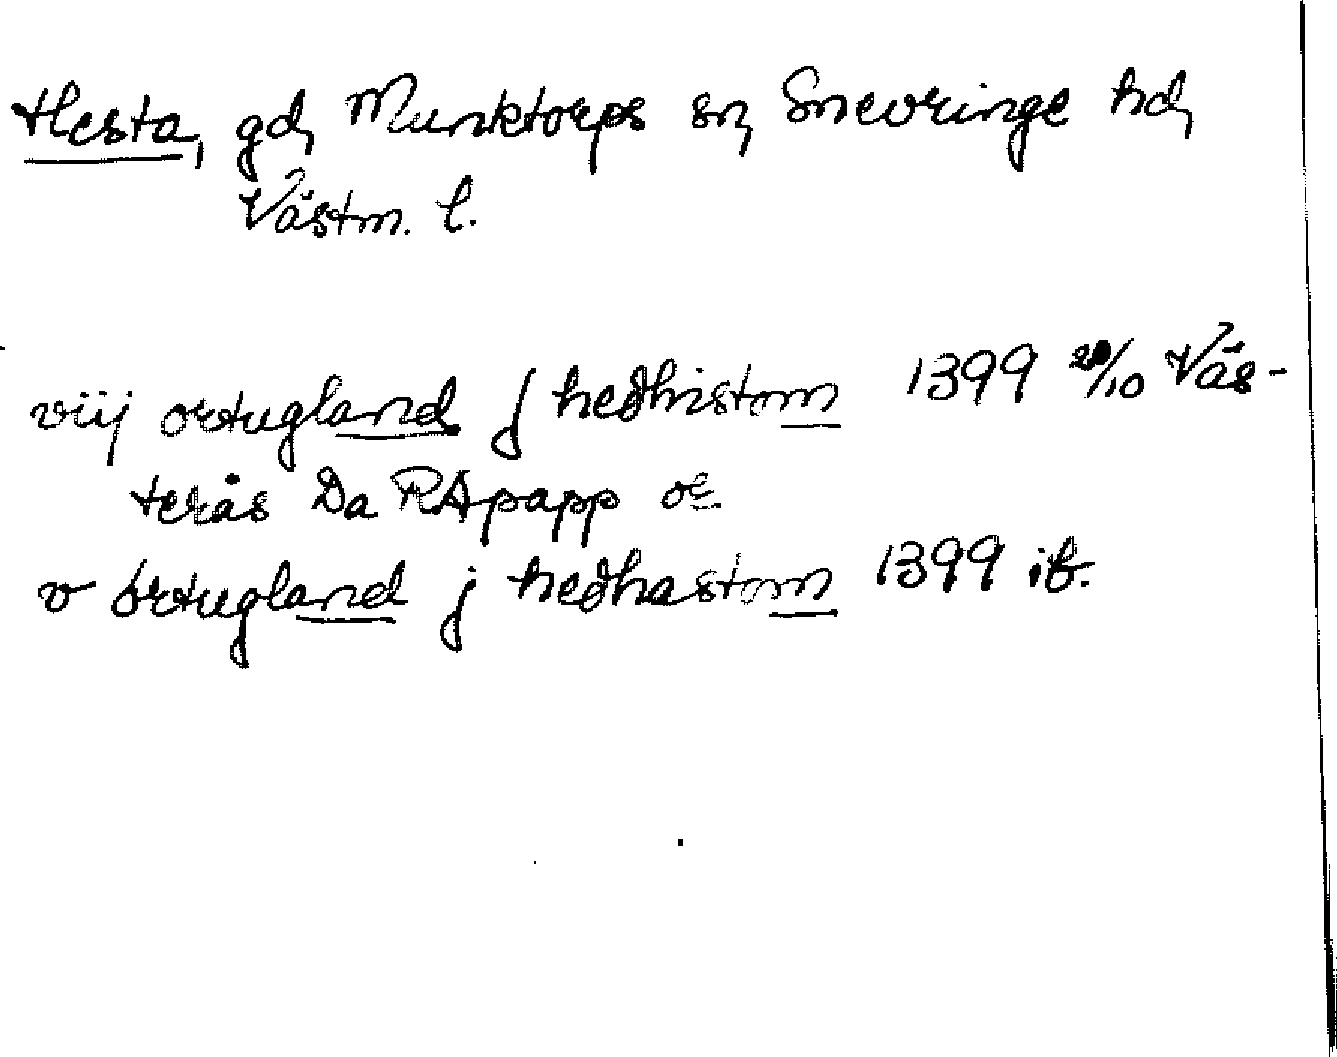 Hesta, gd, Munktorps sn, Snevringe hd,
Västm. l.
viij ortugland j hedhistom 1399 /10 Väs-
terås Da RApapp or
v ørtugland j hedhastom 1399 ib.